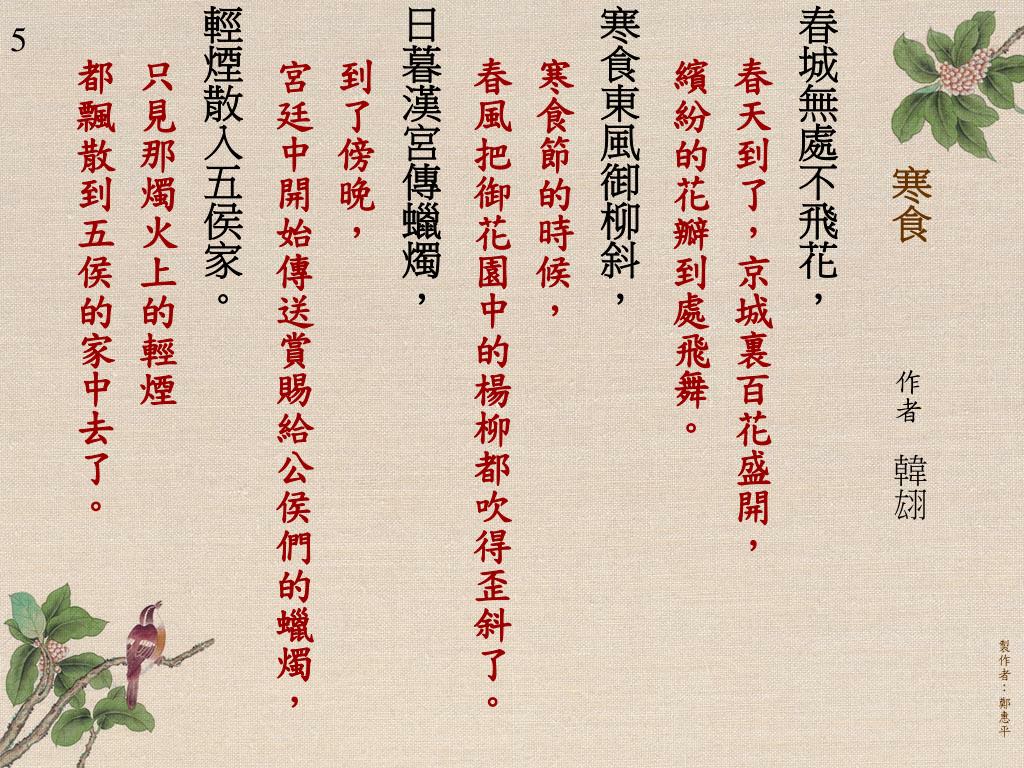 寒食
作者 韓翃
春城無處不飛花，
春天到了，京城裏百花盛開，
繽紛的花瓣到處飛舞。
寒食東風御柳斜，
寒食節的時候，
春風把御花園中的楊柳都吹得歪斜了。
日暮漢宮傳蠟燭，
到了傍晚，
宮廷中開始傳送賞賜給公侯們的蠟燭，
輕煙散入五侯家。
只見那燭火上的輕煙
都飄散到五侯的家中去了。
5
製作者：鄭惠平